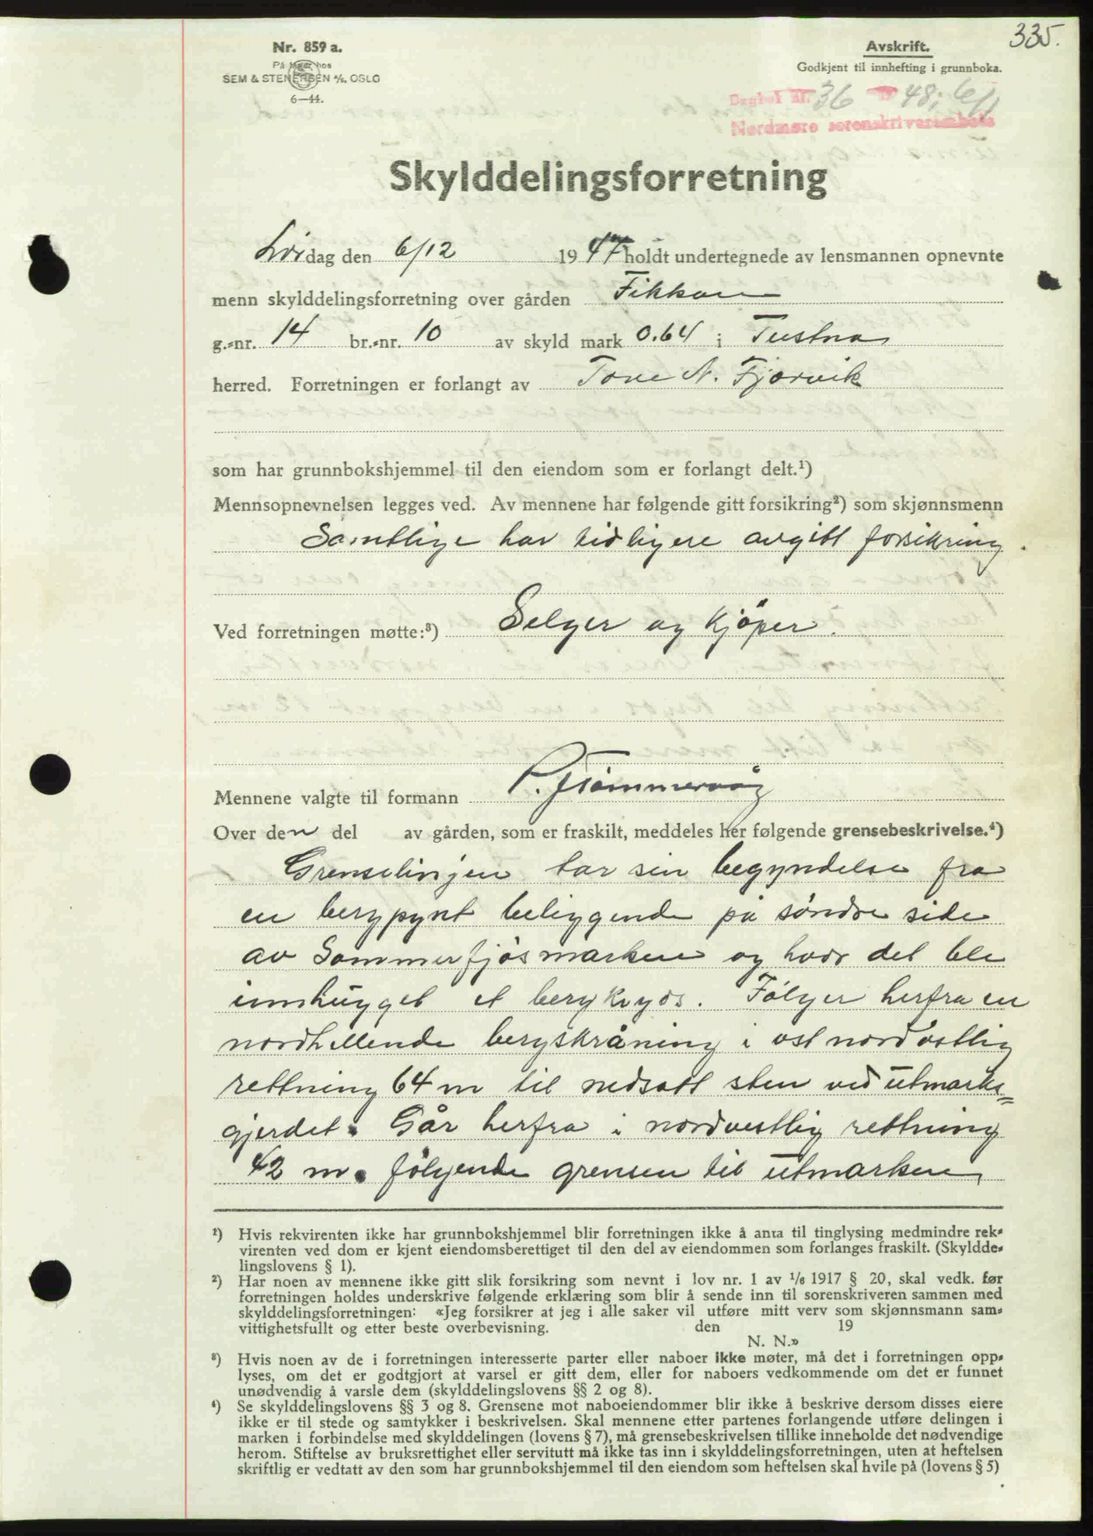 335.
Nr. 859 a.
På lager hos
SEM & STENERSEN A/S, OSLO
6—44.
Avskrift.
Godkjent til innhefting i grunnboka.
Dagbok nr. 36 48; 6/1
Nordmøre sorenskriverembete
Skylddelingsforretning
Lördag den 6/12 1947 holdt undertegnede av lensmannen opnevnte
menn skylddelingsforretning over gården Fikkan
g.-nr. 14 br.-nr. 10 av skyld mark 0.64 i Tustna
herred. Forretningen er forlangt av Tore N. Fjörvik
som har grunnbokshjemmel til den eiendom som er forlangt delt.¹)
Mennsopnevnelsen legges ved. Av mennene har følgende gitt forsikring²) som skjønnsmenn
Samtlige har tidligere avgitt forsikring.
Ved forretningen møtte:³) Selger og Kjöper.
Mennene valgte til formann P.
Over den del av gården, som er fraskilt, meddeles her følgende grensebeskrivelse.⁴)
Grenselinjen tar sin begyndelse fra
en bergpynt beliggende på söndre side
av Sommerfjösmarken og hvor det ble
innhugget et bergkryds. Fölger herfra en
nordhellende bergskråning i ost nordöstlig
rettning 64 m til nedsatt sten ved utmarks=
gjerdet. Går herfra i nordvestlig rettning
42 m. fölgende grensen til utmarken,
¹) Hvis rekvirenten ikke har grunnbokshjemmel blir forretningen ikke å anta til tinglysing medmindre rek-
virenten ved dom er kjent eiendomsberettiget til den del av eiendommen som forlanges fraskilt. (Skyldde-
lingslovens § 1).
²) Har noen av mennene ikke gitt slik forsikring som nevnt i lov nr. 1 av 1/6 1917 § 20, skal vedk. før
forretningen holdes underskrive følgende erklæring som blir å sende inn til sorenskriveren sammen med
skylddelingsforretningen: «Jeg forsikrer at jeg i alle saker vil utføre mitt verv som skjønnsmann sam-
vittighetsfullt og etter beste overbevisning. den 19
N. N.»
³) Hvis noen av de i forretningen interesserte parter eller naboer ikke møter, må det i forretningen opp-
lyses, om det er godtgjort at varsel er gitt dem, eller for naboers vedkommende om det er funnet
unødvendig å varsle dem (skylddelingslovens §§ 2 og 8).
⁴) Se skylddelingslovens §§ 3 og 8. Grensene mot naboeiendommer blir ikke å beskrive dersom disses eiere
ikke er til stede og samtykker i beskrivelsen. Skal mennene etter partenes forlangende utføre delingen i
marken i forbindelse med skylddelingen (lovens § 7), må grensebeskrivelsen tillike inneholde det nødvendige
herom. Stiftelse av bruksrettighet eller servitutt må ikke tas inn i skylddelingsforretningen, uten at heftelsen
skriftlig er vedtatt av den som har grunnbokshjemmel til den eiendom som heftelsen skal hvile på (lovens § 5)